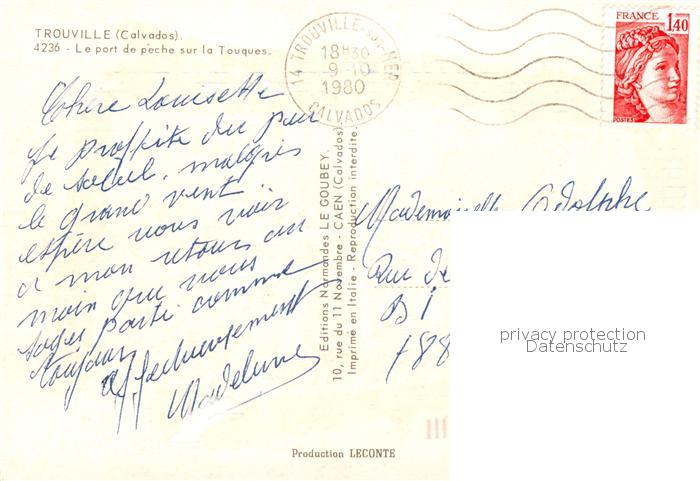 TROUVILLE (Calvados).
4236 - Le port de pêche sur la Touques.
14 TROUVILLE-SUR-MER
18H30
9-10
1980
CALVADOS
FRANCE
1,40
POSTES
Chère Louisette
Je proffite du peu
de soleil. malgrés
le grand vent
espère vous voir
a mon retour au
moin que vous
soyes parti comme
toujour
affectueusement
Madeleine
Editions Normandes LE GOUBEY.
10, rue du 11 Novembre - CAEN (Calvados)
Imprimé en Italie - Reproduction interdite.
Mademoiselle Adolphe
Rue de
B 1
788
privacy protection
Datenschutz
Production LECONTE